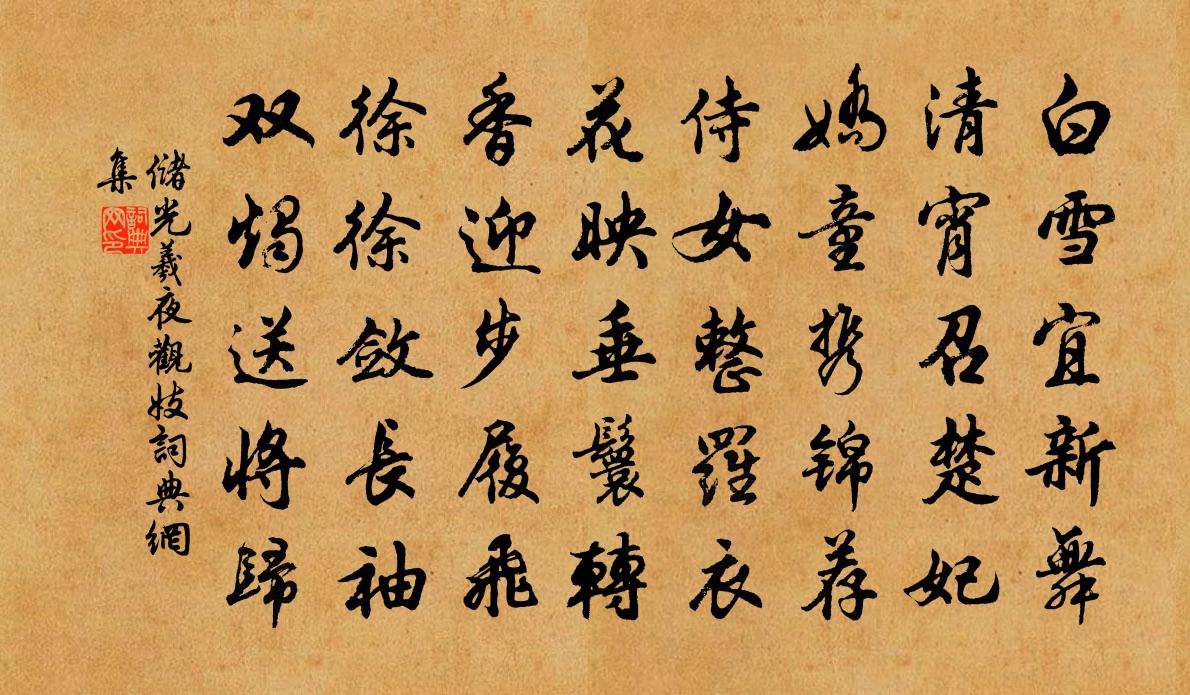 白雪宜新舞
清宵召楚妃
嬌童携锦荐
侍女整羅衣
花映垂鬟轉
香迎步履飛
徐徐斂長袖
双燭送將歸
儲光羲夜觀妓詞典網
集
詞典網印